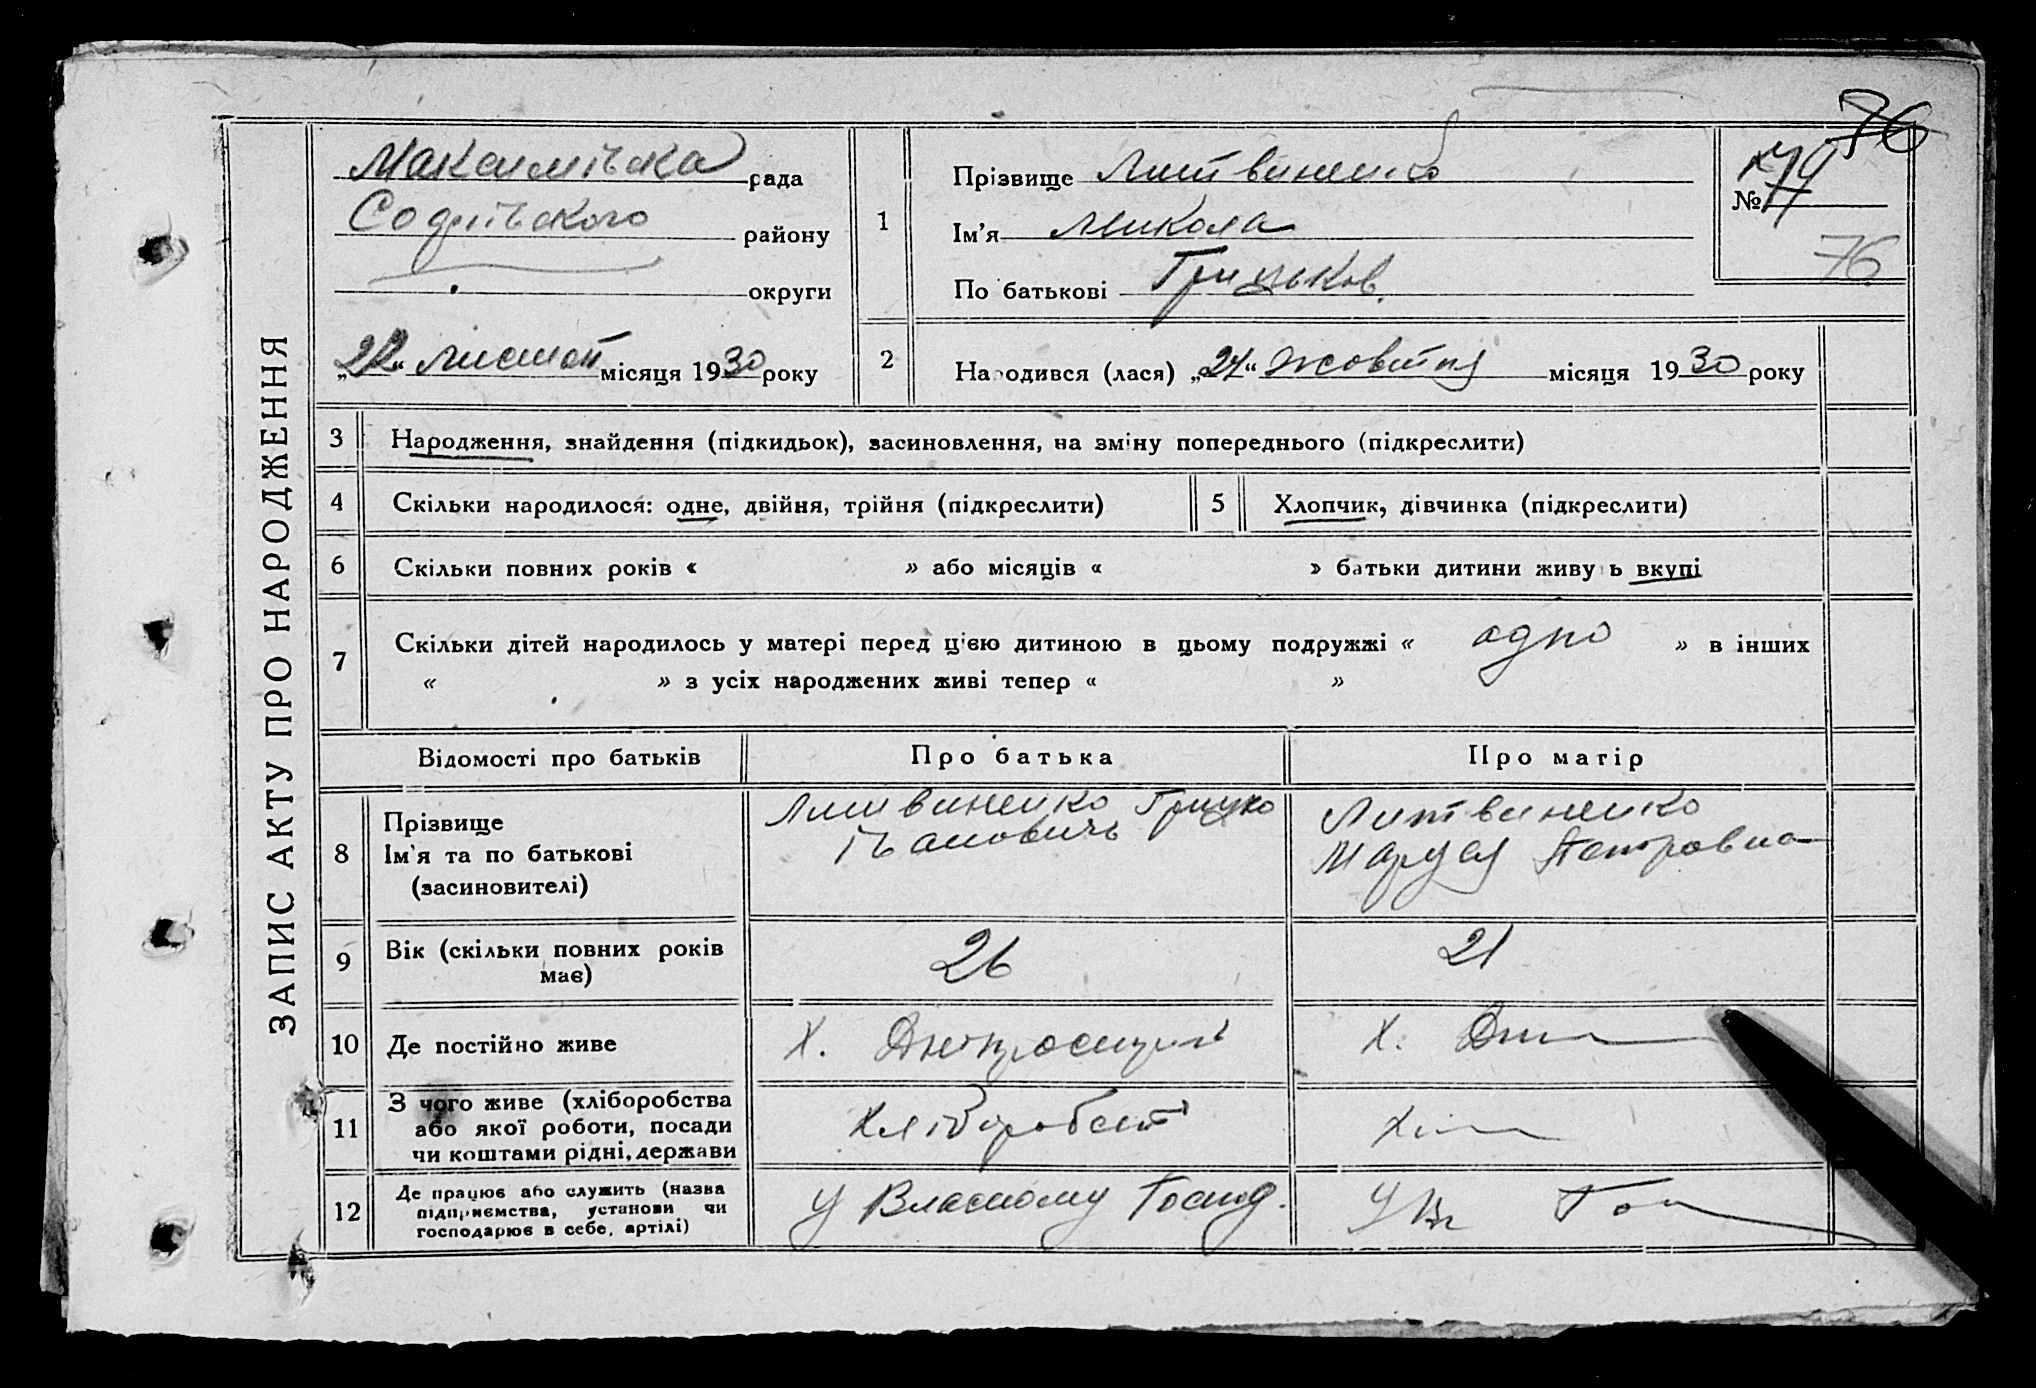 76
ЗАПИС АКТУ ПРО НАРОДЖЕННЯ
Максимівка рада
Софіївского району
округи
„22“ листоп місяця 1930 року
1
Прізвище Литвиненко
Ім’я Микола
По батькові Грицьков.
№ 74
76
2
Народився (лася) „24“ жовтня місяця 1930 року
3 Народження, знайдення (підкидьок), засиновлення, на зміну попереднього (підкреслити)
4 Скільки народилося: одне, двійня, трійня (підкреслити)
5 Хлопчик, дівчинка (підкреслити)
6 Скільки повних років « » або місяців « » батьки дитини живу ь вкупі
7 Скільки дітей народилось у матері перед цією дитиною в цьому подружжі « одно » в інших
« » з усіх народжених живі тепер « »
Відомості про батьків
Про батька
Про матір
8
Прізвище
Ім’я та по батькові
(засиновителі)
Литвиненко Грицко
Івановичь
Литвиненко
Маруся Петровна
9
Вік (скільки повних років
має)
26
21
10 Де постійно живе
Х.
Х.
11
З чого живе (хліборобства
або якої роботи, посади
чи коштами рідні, держави
Хліборобст
12
Де працює або служить (назва
підприємства, установи чи
господарює в себе, артілі)
У Власному Господ.
У Вл Гос